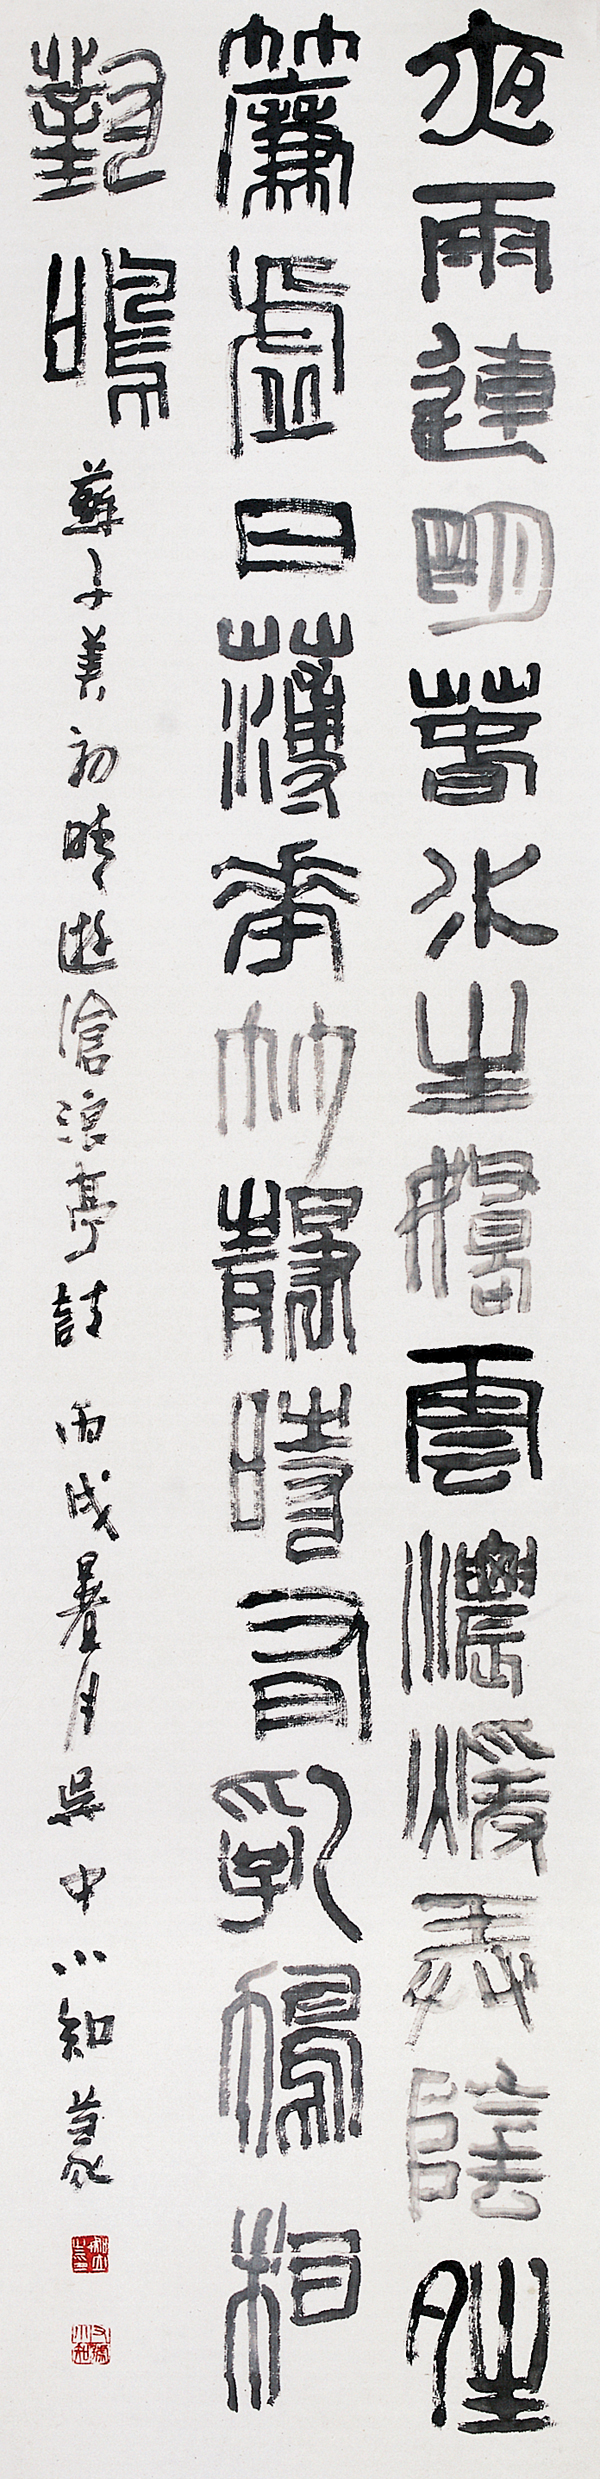 夜雨連明春水生嬌雲濃煖弄陰夝
簾虛日薄花竹靜時有乳鳩相
對鳴 蘇子美初晴遊滄浪亭詩 丙戌暑月吳中小知篆
又號小知